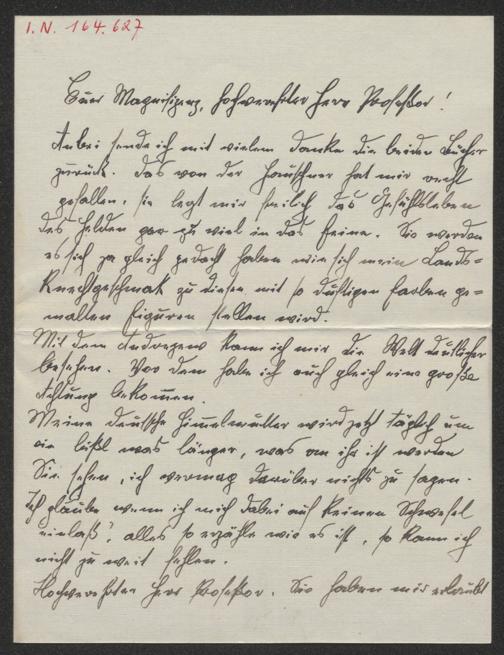 I.N. 164.627
Euer Magnifizenz, hochverehrter Herr Professor!
Anbei sende ich mit vielem Danke die beiden Bücher
zurück. Das von der Hauschner hat mir recht
gefallen, sie legt mir freilich das Gefühlsleben
des Helden gar zu viel in das feine. Sie werden
es sich ja gleich gedacht haben wie sich mein Lands-
knechtgeschmak zu diesen mit so duftigen farben ge-
malten figuren stellen wird.
Mit dem kann ich mir die Welt deutlicher
besehen. Vor dem habe ich auch gleich eine große
Achtung bekommen.
Meine deutsche Himmelmutter wird jetzt täglich um
ein bißl was länger, was an ihr ist werden
Sie sehen, ich vermag darüber nichts zu sagen.
Ich glaube wenn ich mich dabei auf keinen Schwefel
einlaß', alles so erzähle wie es ist, so kann ich
nicht zu weit fehlen.
Hochverehrter Herr Professor. Sie haben mir erlaubt